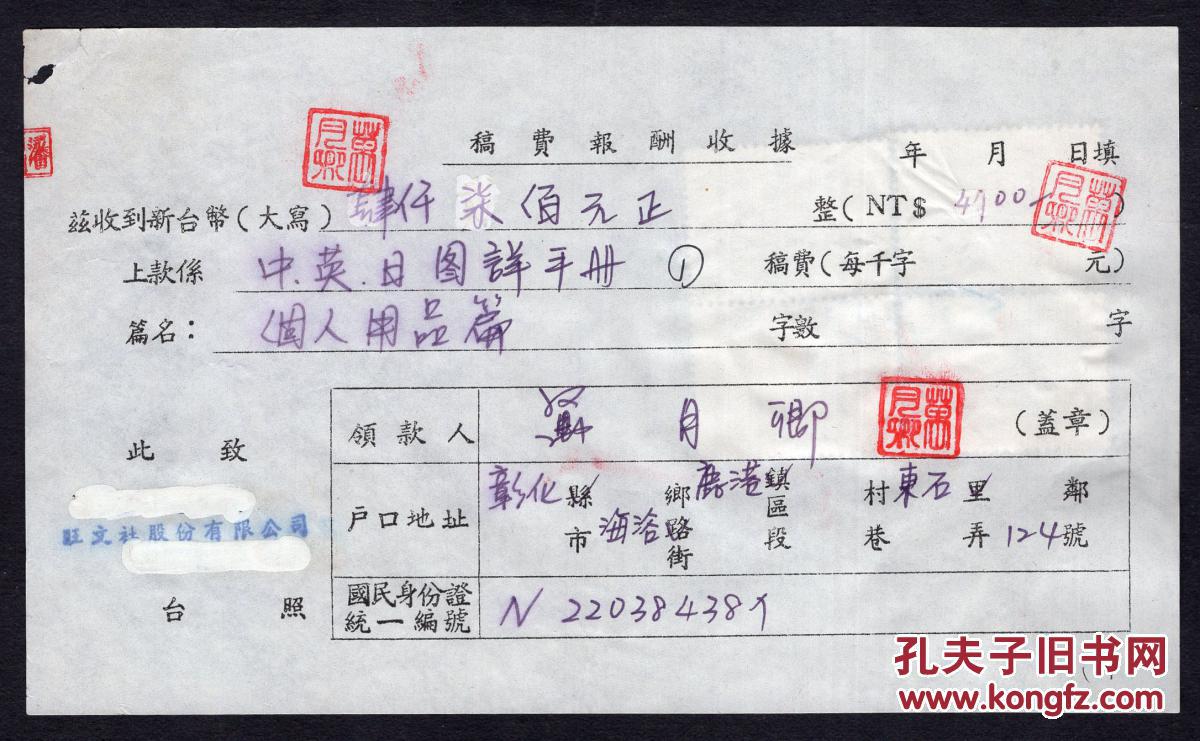 稿費報酬收據
年 月 日填
茲收到新台幣(大寫)肆仟柒佰元正 整(NT$ 4700 )
上款係 中.英.日图詳手册 ① 稿費(每千字 元)
篇名: 個人用品篇 字數 字
此致
旺文社股份有限公司
台照
領款人 月卿 (蓋章)
戶口地址 彰化縣市 鄉鹿港鎮區 村東石里 鄰
海浴路街 段 巷 弄 124號
國民身份證統一編號 N 22038438
孔夫子旧书网
www.kongfz.com